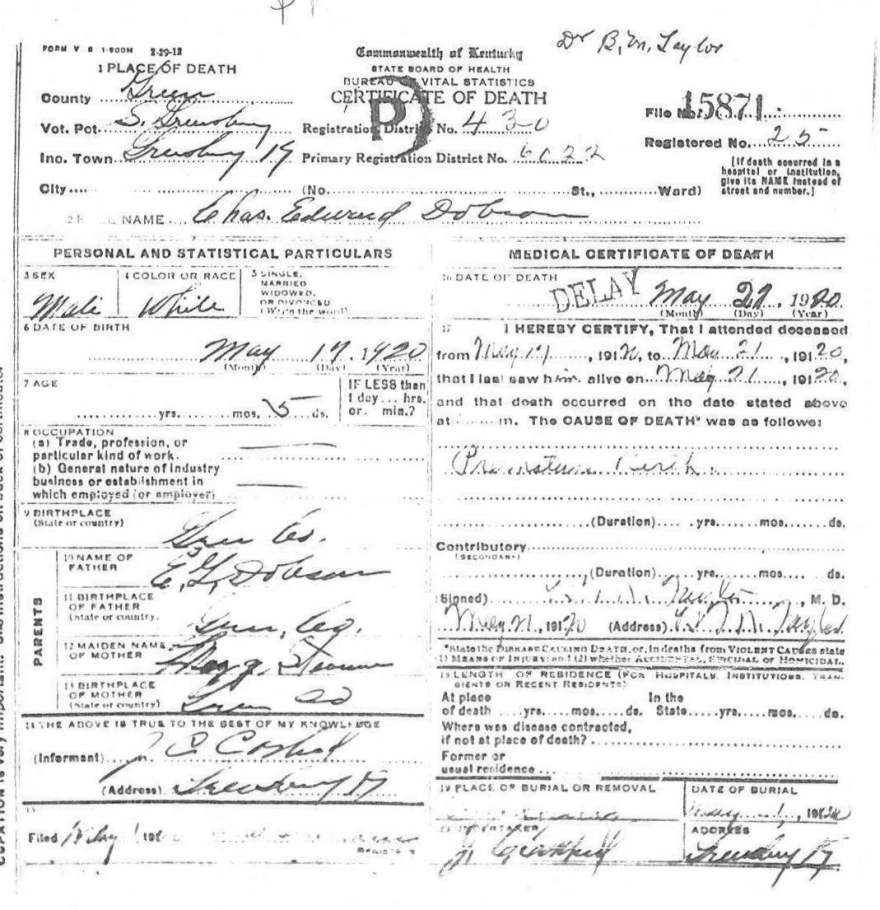 Dr B. M. Taylor
FORM V S 1-500M 2-29-12
Commonwealth of Kentucky
STATE BOARD OF HEALTH
BUREAU OF VITAL STATISTICS
CERTIFICATE OF DEATH
1 PLACE OF DEATH
County Green
Vot. Pct. S. Greensburg
Registration District No. 430
File No. 15871
Ino. Town Greensburg Ky
Primary Registration District No. 6022
Registered No. 25
[If death occurred in a hospital or institution, give its NAME instead of street and number.]
City (No. St., Ward)
2 NAME Chas. Edward Dobson
PERSONAL AND STATISTICAL PARTICULARS
3 SEX
Male
4 COLOR OR RACE
White
5 SINGLE,
MARRIED
WIDOWED,
OR DIVORCED
(Write the word)
6 DATE OF BIRTH
May 17, 1920
(Month) (Day) (Year)
7 AGE
yrs. mos. 5 ds.
IF LESS than
1 day... hrs.
or. min.?
8 OCCUPATION
(a) Trade, profession, or
particular kind of work.
(b) General nature of Industry
business or establishment in
which employed (or employer)
9 BIRTHPLACE
(State or country)
Green Co.
PARENTS
10 NAME OF
FATHER
E. G. Dobson
11 BIRTHPLACE
OF FATHER
(State or country.
Green, Co.
12 MAIDEN NAME
OF MOTHER
13 BIRTHPLACE
OF MOTHER
(State or country)
Green Co
14 THE ABOVE IS TRUE TO THE BEST OF MY KNOWLEDGE
(Informant)
(Address) Greensburg Ky
15
Filed
MEDICAL CERTIFICATE OF DEATH
16 DATE OF DEATH
DELAY
May 21, 1920
(Month) (Day) (Year)
17 I HEREBY CERTIFY, That I attended deceased
from May 17, 1920, to May 21, 1920,
that I last saw him alive on May 21, 1920,
and that death occurred on the date stated above
at m. The CAUSE OF DEATH* was as follows:
Premature Birth
(Duration) yrs. mos. ds.
Contributory
(SECONDARY)
(Duration) yrs. mos. ds.
Signed) Taylor, M. D.
May 21, 1920 (Address) Taylor
*State the DISEASE CAUSING DEATH, or, in deaths from VIOLENT CAUSES state
1) MEANS OF INJURY and (2) whether ACCIDENTAL, SUICIDAL or HOMICIDAL.
18 LENGTH OF RESIDENCE (FOR HOSPITALS, INSTITUTIONS, TRAN-
SIENTS OR RECENT RESIDENTS)
At place In the
of death yrs. mos. ds. State yrs. mos. ds.
Where was disease contracted,
if not at place of death?
Former or
usual residence
19 PLACE OF BURIAL OR REMOVAL
DATE OF BURIAL
ADDRESS
Greensburg Ky